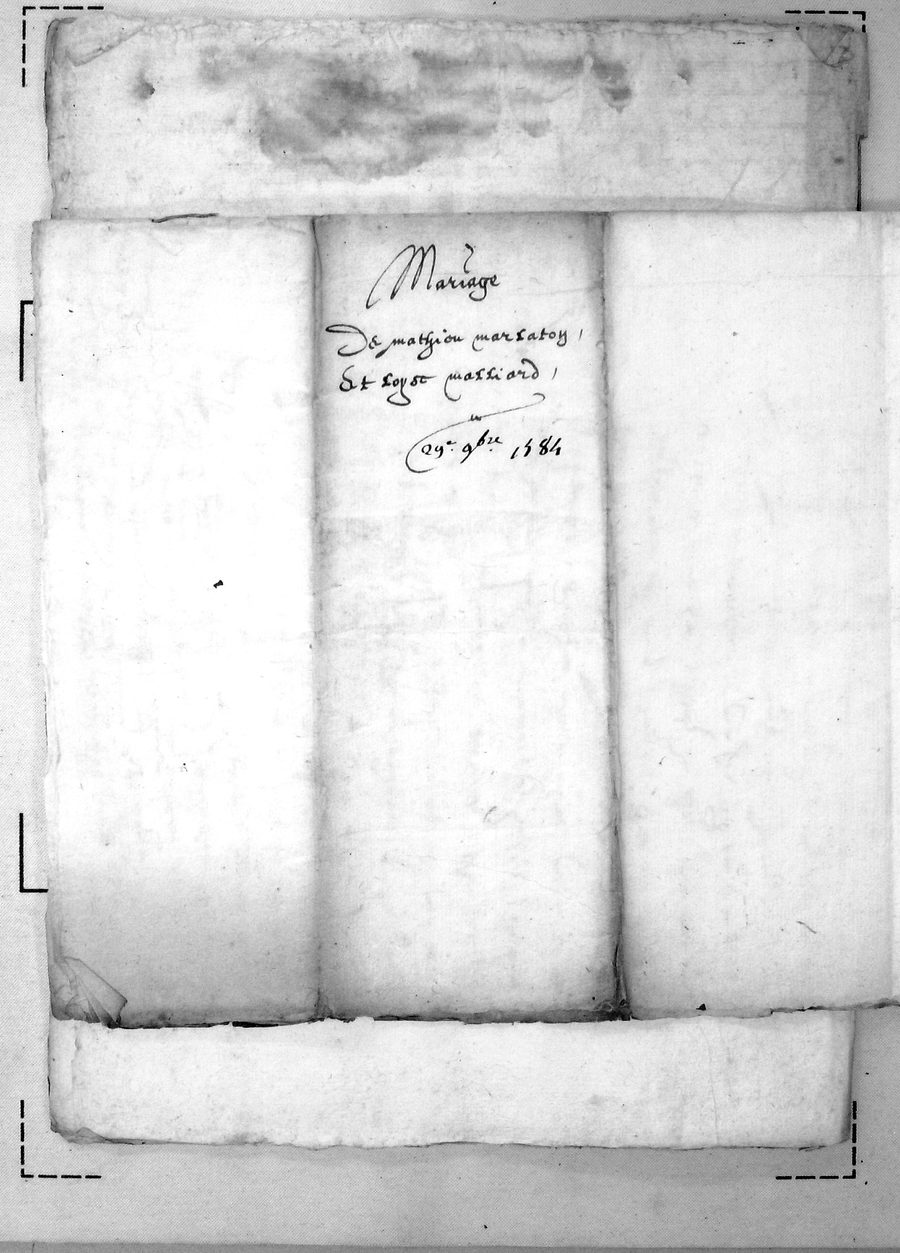 Mariage
De mathieu marlaton,
Et loyse malliard,
29e. 9bre 1584